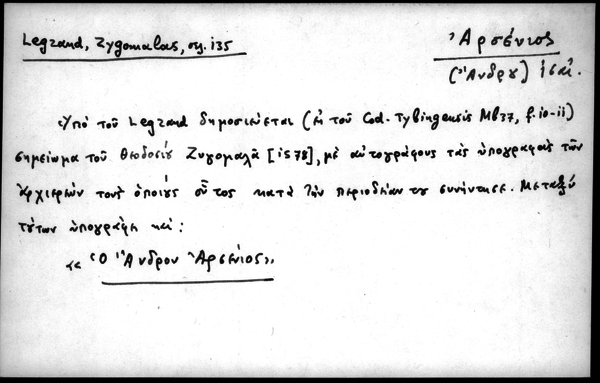 Legrand, Zygomalas, σ. 135
Ἀρσένιος
(Ἄνδρου)
Ὑπὸ τοῦ Legrand δημοσιεύεται (ἐκ τοῦ Cod. Tybingensis Mb37, f. 10-11)
σημείωμα τοῦ Θεοδοσίου Ζυγομαλᾶ [1578], μὲ αὐτογράφους τὰς ὑπογραφὰς τῶν
ἀρχιερέων τοὺς ὁποίους οὗτος κατὰ τὴν περιοδείαν του συνήντησε. Μεταξὺ
τούτων ὑπογράφει καὶ:
« Ὁ Ἄνδρου Ἀρσένιος».